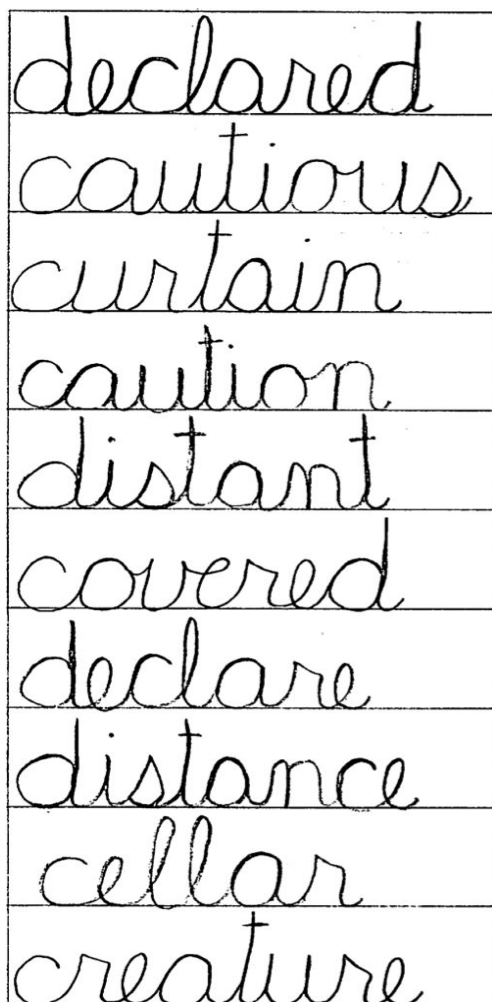 declared
cautious
curtain
caution
distant
covered
declare
distance
cellar
creature